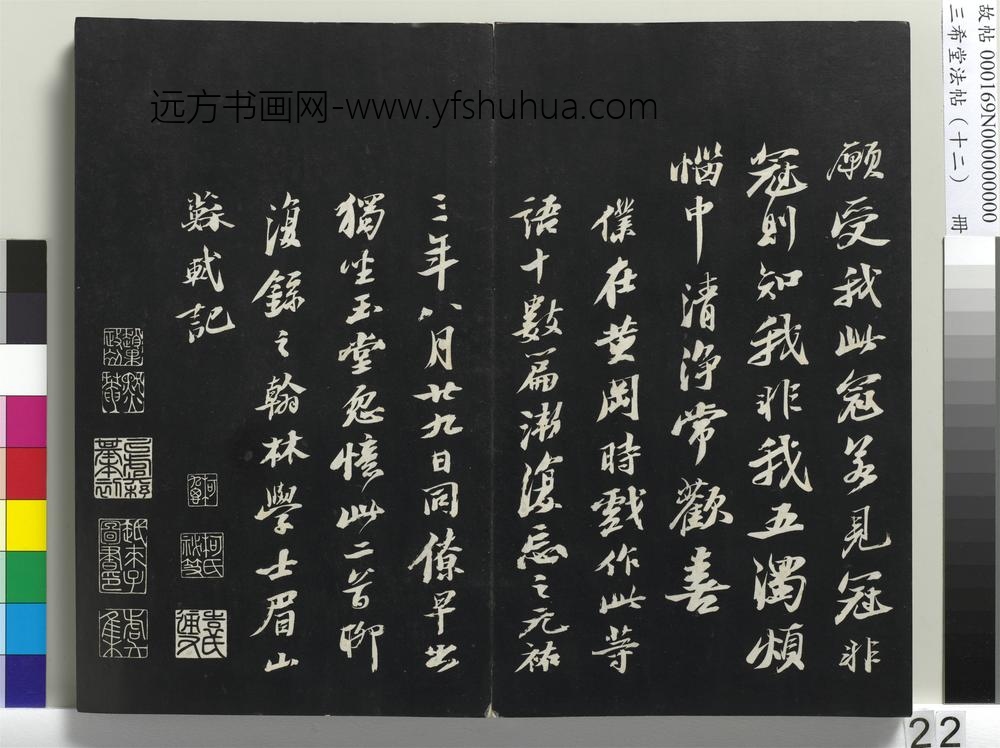 远方书画网-www.yfshuhua.com
故帖 000169N000000000
三希堂法帖（十二） 册
願受我此冠若見冠非
冠則知我非我五濁煩
惱中清淨常歡喜
僕在黄岡時戲作此等
語十數篇漸復忘之元祐
三年八月廿九日同僚早出
獨坐玉堂忽憶此二首聊
復錄之翰林學士眉山
蘇軾記
柯氏
袁氏
22